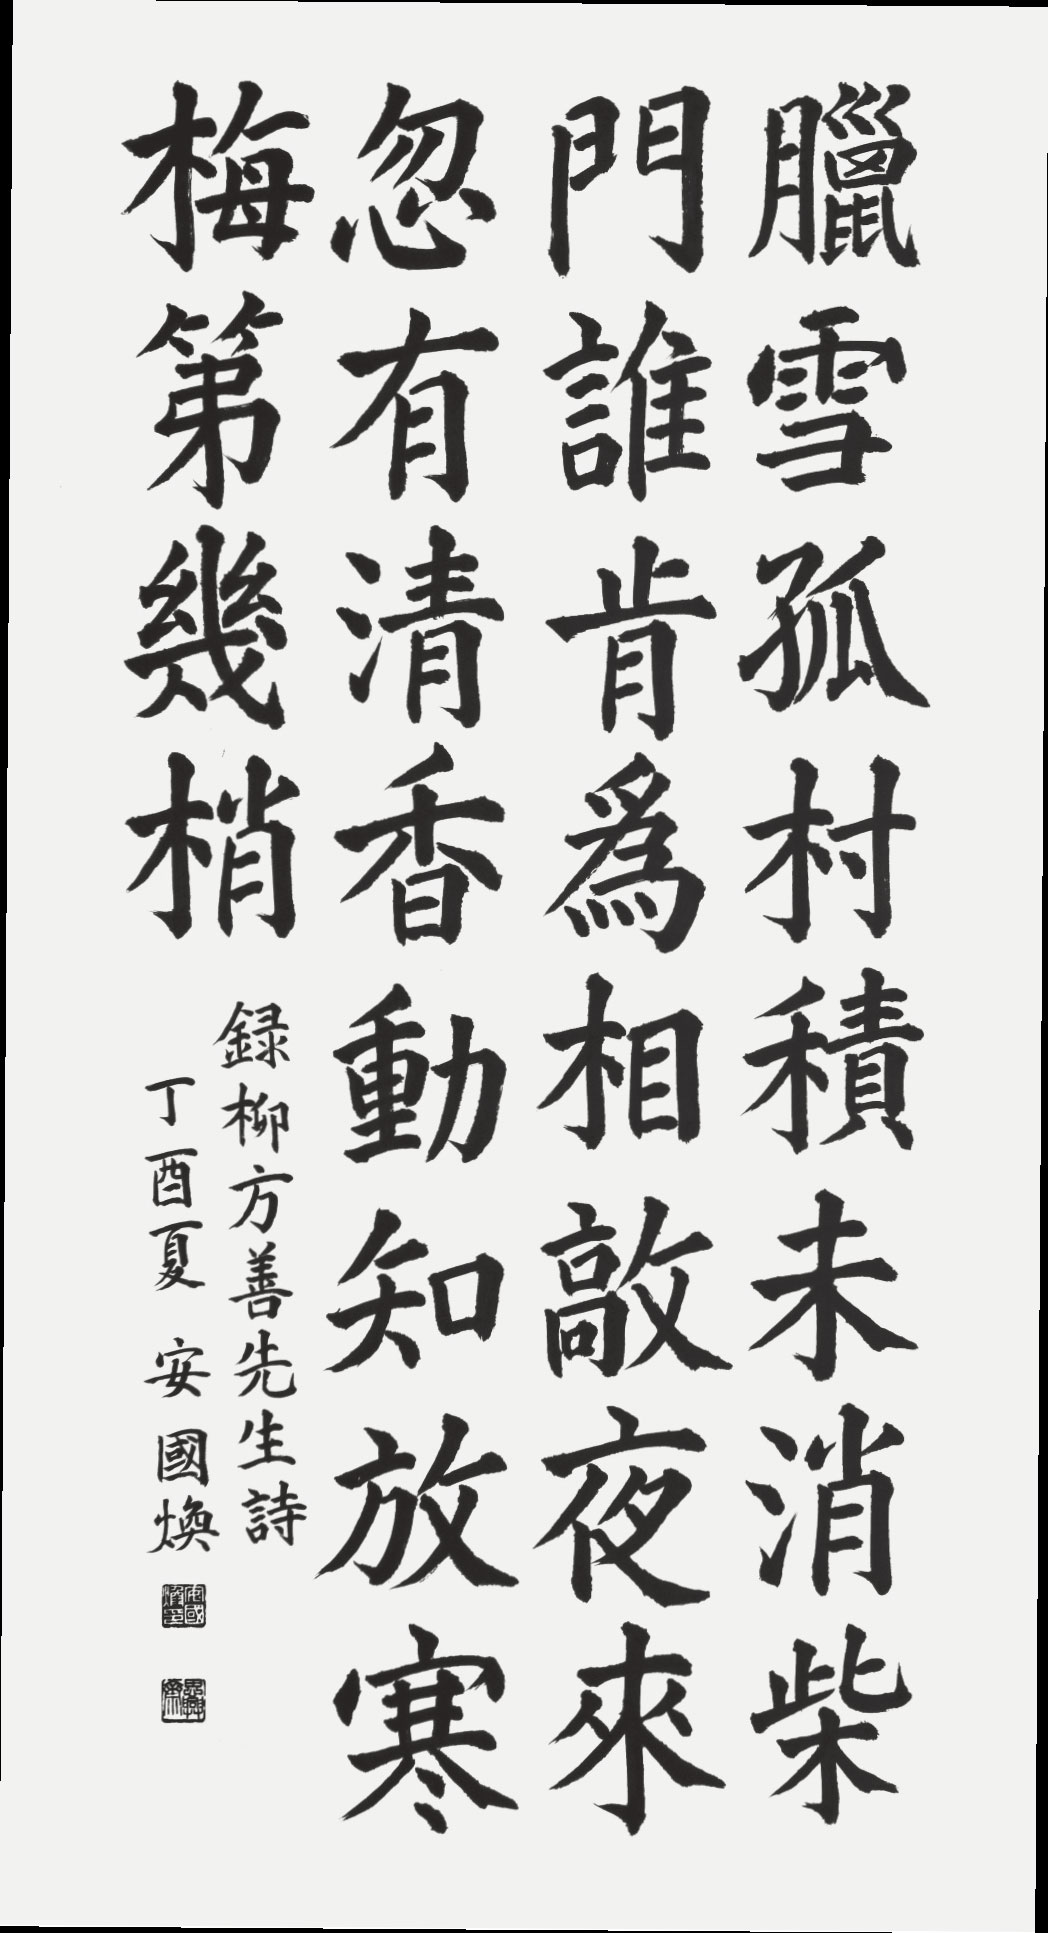 臘雪孤村積未消柴
門誰肯爲相敲夜來
忽有清香動知放寒
梅第幾梢
録柳方善先生詩
丁酉夏 安國煥